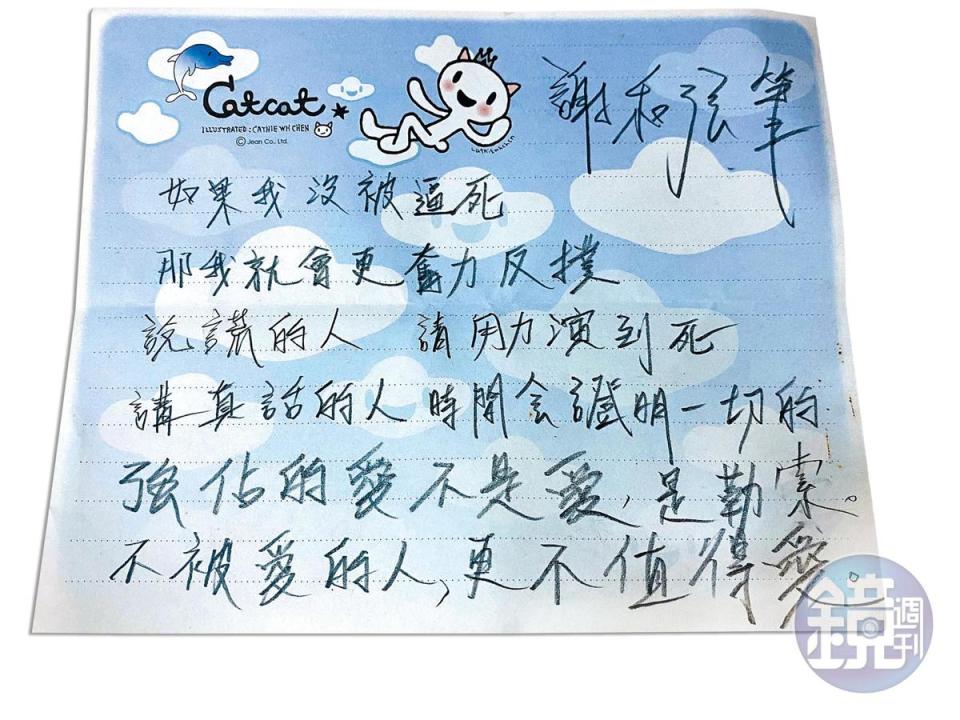 Catcat
ILLUSTRATED: CATHIE WH CHEN
© Jean Co., Ltd.
謝和弦筆
如果我沒被逼死
那我就會更奮力反撲
說謊的人 請用力演到死
講真話的人時間会證明一切的
強佔的愛不是愛,是勒索。
不被愛的人,更不值得愛
鏡週刊